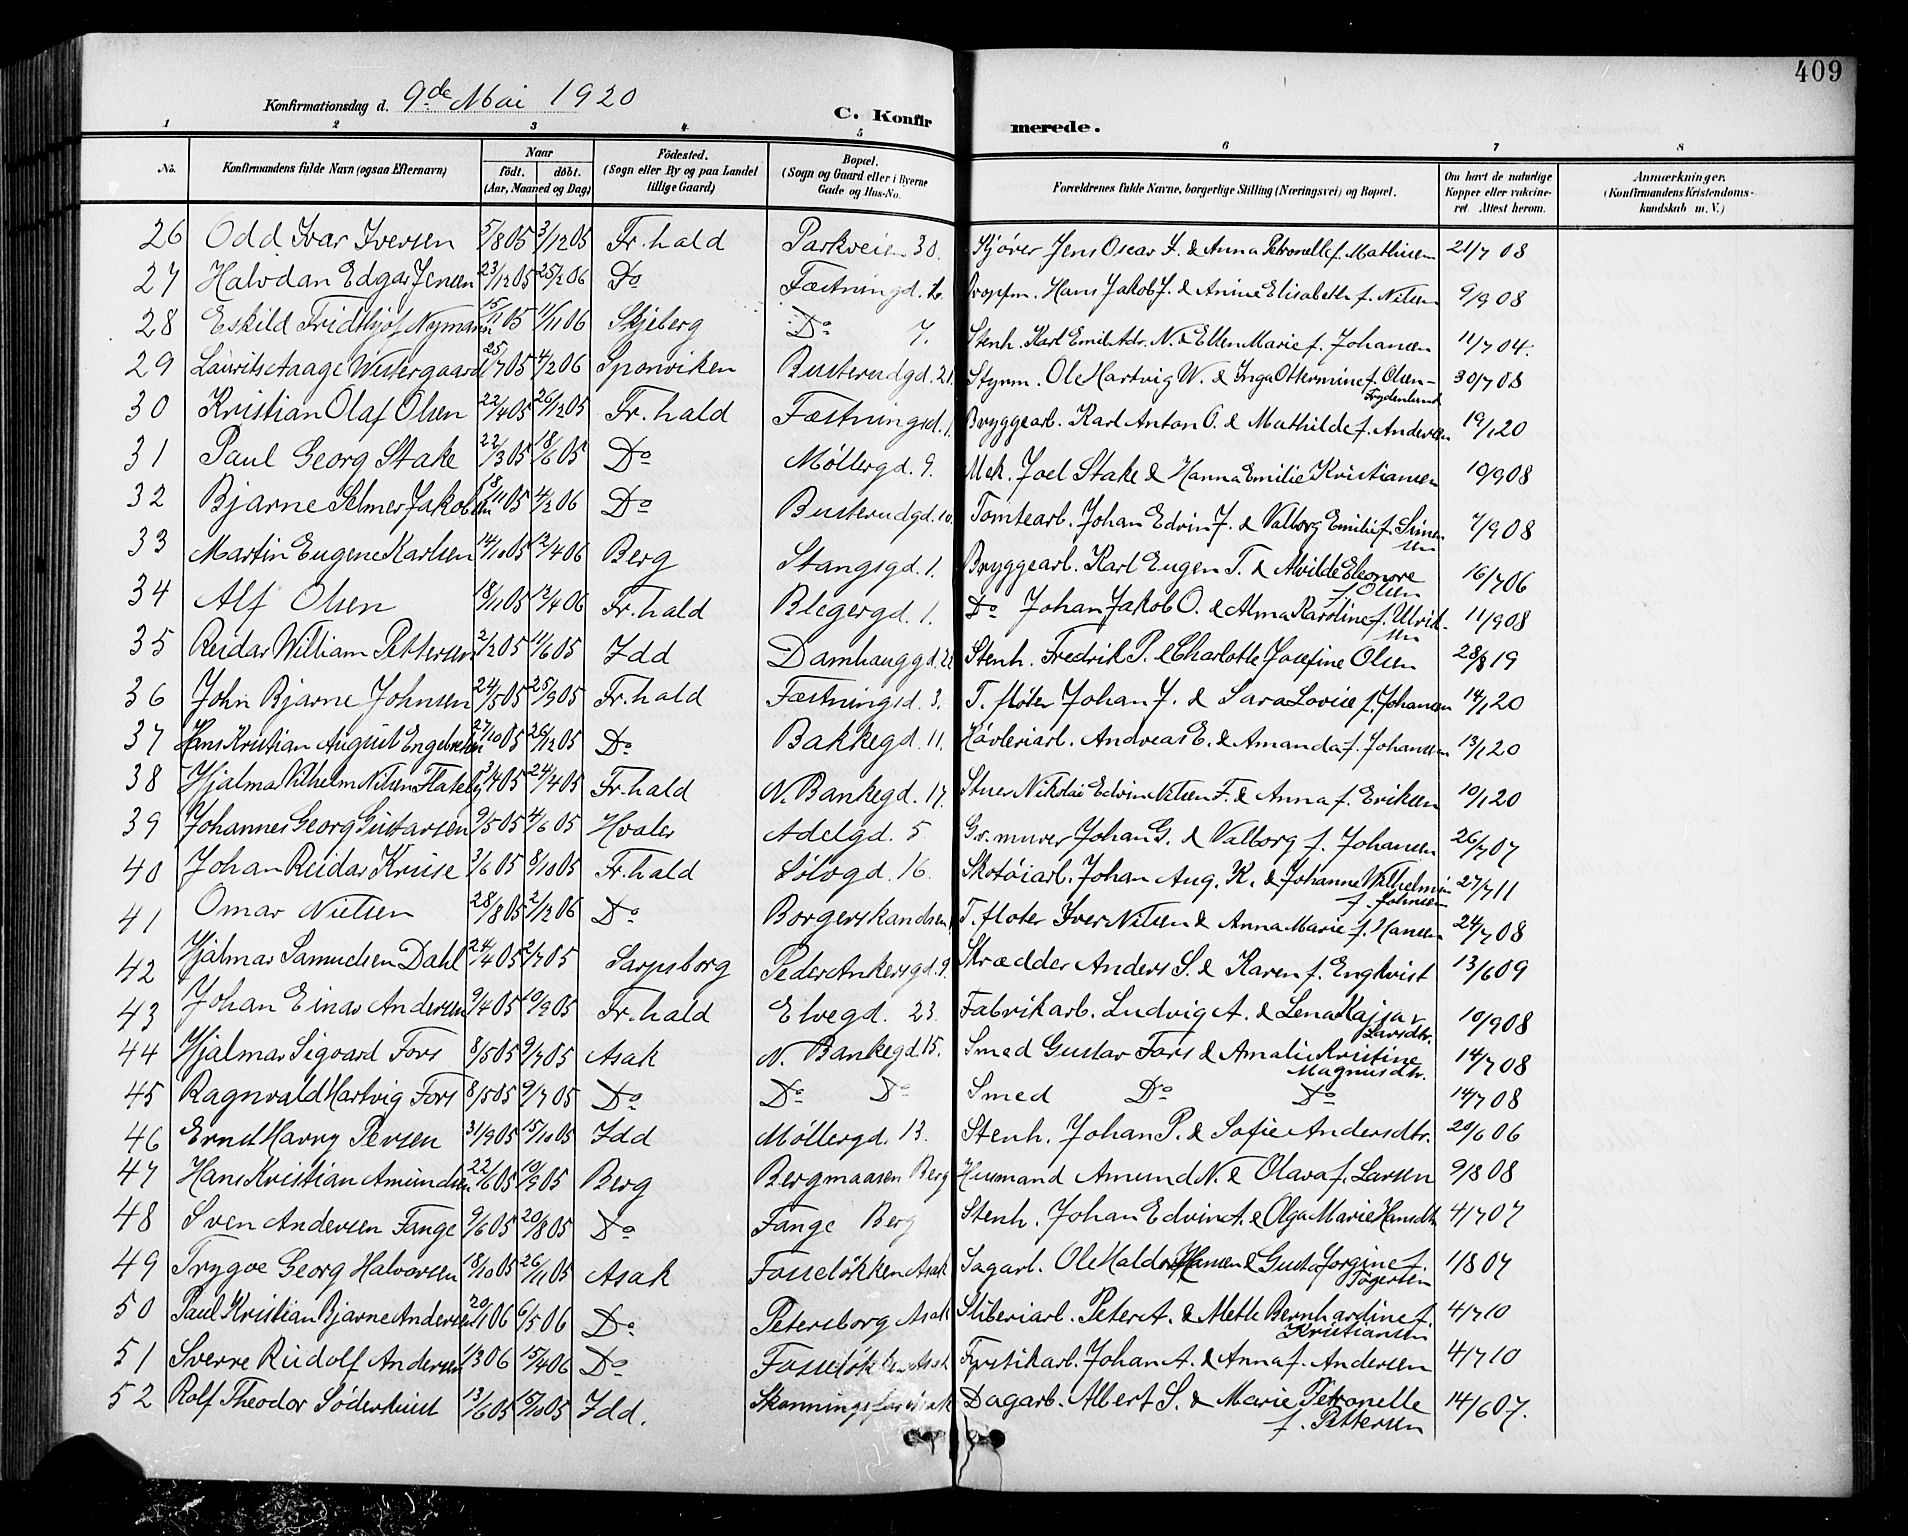 409
Konfirmationsdag d. 9de Mai 1920
C. Konfirmerede.
1 2 3 4 5 6 7 8
No. Konfirmandens fulde Navn (ogsaa Efternavn) Naar født. døbt. (Aar, Maaned og Dag) Fødested. (Sogn eller By og paa Landet tillige Gaard) Bopæl. (Sogn og Gaard eller i Byerne Gade og Hus-No. Forældrenes fulde Navne, borgerlige Stilling (Næringsvei) og Bopæl. Om havt de naturlige Kopper eller vakcineret. Attest herom. Anmærkninger. (Konfirmandens Kristendomskundskab m. V.)
26 Odd Ivar Iversen 5/8 05 3/12 05 Fr.hald Parkveien 30. Kjører Jens Oscar I. & Anna Petronelle f. Mathisen 21/7 08
27 Halvdan Edgar Jensen 23/12 05 25/2 06 Do Fæstningd. Hans Jakob J. & Anine Elisabeth f. Nilsen 9/9 08
28 Eskild Fridthjof Nyman 15/11 05 1/11 06 Skjeberg Do 7. Stenh. Karl Emil Adr. N. & Ellen Marie f. Johansen 11/7 04.
29 Laurits Aage Westergaard 25/7 05 4/2 06 Sponviken Busterudgd. 21. Styrm. Ole Hartvig W. & Inga Ottermine f. Olsen- Frydenlund 30/7 08
30 Kristian Olaf Olsen 22/4 05 26/12 05 Fr.hald Fæstningsd. 1. Bryggearb. Karl Anton O. & Mathilde f. Andersen 19/1 20
31 Paul Georg Stake 22/3 05 18/6 05 Do Møllergd. 9. Mek. Joel Stake & Hanna Emilie Kristiansen 10/9 08
32 Bjarne Selmer Jakobsen 18/11 05 4/2 06 Do Busterudgd. 10. Tomtearb. Johan Edvin J. & Valborg Emilie f. Simensen 7/9 08
33 Martin Eugene Karlsen 14/10 05 12/4 06 Berg Stangsgd. 1. Bryggearb. Karl Eugen T. & Alvilde Eleonore f. Olsen 16/7 06
34 Alf Olsen 18/11 05 12/4 06 Fr.hald Blegergd. 1. Do Johan Jakob O. & Alma Karoline f. Ulvidsen 11/9 08
35 Reidar William Pettersen 2/2 05 11/6 05 Idd Damhauggd. 22 Stenh. Fredrik P. & Charlotte Josefine Olsen 28/8 19
36 John Bjarne Johnsen 24/5 05 25/9 05 Fr.hald Fæstningsd. 3. T. fløter Johan J. & Sara Lovise f. Johansen 14/1 20
37 Hans Kristian August Engebretsen 27/10 05 26/12 05 Do Bakkegd. 11. Høvleriarb. Andreas E. & Amanda f. Johansen 13/1 20
38 Hjalmar Vilhelm Nilsen Flateby 3/4 05 24/4 05 Fr.hald N. Bankegd. 17. Stuer Nikolai Edvin Nilsen F. & Anna f. Eriksen 10/1 20
39 Johannes Georg Gustavsen 9/5 05 4/6 05 Hvaler Adelgd. 5. Gr. murer Johan G. & Valborg f. Johansen 26/7 07
40 Johan Reidar Kruse 3/6 05 8/10 05 Fr.hald Sølvgd. 16. Skotøiarb. Johan Aug. K. & Johanne Wilhelmin f. Johnsen 27/7 11
41 Omar Nielsen 28/8 05 2/12 06 Do Borgerskandsen T. fløter Iver Nilsen & Anna Marie f. Hansen 24/7 08
42 Hjalmar Samuelsen Dahl 24/4 05 2/7 05 Sarpsborg Peder Ankersgd. 9. Skrædder Anders S. & Karen f. Engkvist 13/6 09
43 Johan Einar Andersen 9/4 05 10/9 05 Fr.hald Elvegd. 23. Fabrikarb. Ludvig A. & Lena Kajsa Larsdtr. 10/9 08
44 Hjalmar Sigvard Fors 8/5 05 9/7 05 Asak N. Bankegd. 15. Smed Gustav Fors & Amalie Kristine Magnusdtr. 14/7 08
45 Ragnvald Hartvig Fors 8/5 05 9/7 05 Do Do Do Smed Do Do 14/7 08
46 Ernd Harry Persen 31/9 05 15/10 05 Idd Møllergd. 13. Stenh. Johan P. & Sofie Andersdtr. 20/6 06
47 Hans Kristian Amundsen 22/6 05 10/9 05 Berg Bergmaasen Berg Husmand Amund N. & Olava f. Larsen 9/8 08
48 Sven Andersen Fange 9/6 05 20/8 05 Do Fange Berg Stenh. Johan Edvin A. & Olga Marie Hansdtr 4/7 07
49 Trygve Georg Halvorsen 18/10 05 26/11 05 Asak Fosseløkken Asak Sagarb. Ole Haldor Hansen & Gusta Jorgine f. Torgersen 1/8 07
50 Paul Kristian Bjarne Andersen 20/1 06 6/5 06 Do Petersborg Asak Sliberiarb. Peter A. & Mette Bernhardine f. Kristiansen 4/7 10
51 Sverre Rudolf Andersen 1/3 06 15/4 06 Do Fosseløkken Asak Fyrstikarb. Johan A. & Anna f. Andersen 4/7 10
52 Rolf Theodor Søderlund 13/6 05 15/10 05 Idd. Skonningsfos Asak Dagarb. Albert S. & Marie Petronelle f. Pettersen 14/6 07.